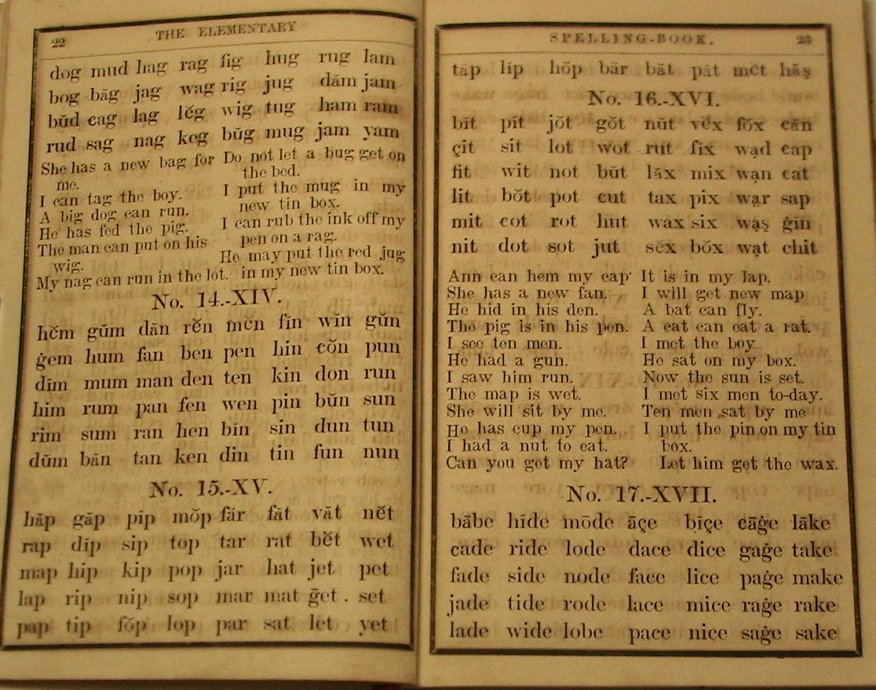 22 THE ELEMENTARY
dog mud hag rag fig hug rug lam
bog băg jag wag rig jug dăm jam
bŭd cag lag lĕg wig tug ham ram
rud sag nag keg bŭg mug jam yam
She has a new bag for
me.
I can tag the boy.
A big dog can run.
He has fed the pig.
The man can put on his
wig.
My nag can run in the lot.
Do not let a bug get on
the bed.
I put the mug in my
new tin box.
I can rub the ink off my
pen on a rag.
He may put the red jug
in my new tin box.
No. 14.-XIV.
hĕm gŭm dăn rĕn mĕn fĭn wĭn gŭn
ġem hum fan ben pen hin cŏn pun
dĭm mum man den ten kin don run
him rum pan fen wen pin bŭn sun
rim sum ran hen bĭn sin dun tun
dŭm băn tan ken din tin fun nun
No. 15.-XV.
hăp găp pĭp mŏp fär făt văt nĕt
rap dĭp sip top tar rat bĕt wet
map hip kip pop jar hat jet pet
lap rip nip sop mar mat ḡet. set
pap tip fŏp lop par sat let yet
SPELLING-BOOK. 23
tăp lĭp hŏp bär băt păt mĕt hăş
No. 16.-XVI.
bĭt pĭt jŏt gŏt nŭt vĕx fŏx căn
çĭt sit lot wot rut fix wạd cap
fit wit not bŭt lăx mix wạn cat
lit bŏt pot cut tax pix wạr sap
mit cot rot hut wax six wạş ġin
nit dot sot jut sĕx bŏx wạt chit
Ann can hem my cap
She has a new fan.
He hid in his den.
The pig is in his pen.
I see ten men.
He had a gun.
I saw him run.
The map is wet.
She will sit by me.
He has cup my pen.
I had a nut to eat.
Can you get my hat?
It is in my lap.
I will get new map
A bat can fly.
A cat can eat a rat.
I met the boy
He sat on my box.
Now the sun is set.
I met six men to-day.
Ten men sat by me
I put the pin on my tin
box.
Let him get the wax.
No. 17.-XVII.
bābe hīde mōde āçe bīçe cāġe lāke
cade ride lode dace dice gaġe take
fade side node face lice paġe make
jade tide rode lace mice raġe rake
lade wide lobe pace nice saġe sake